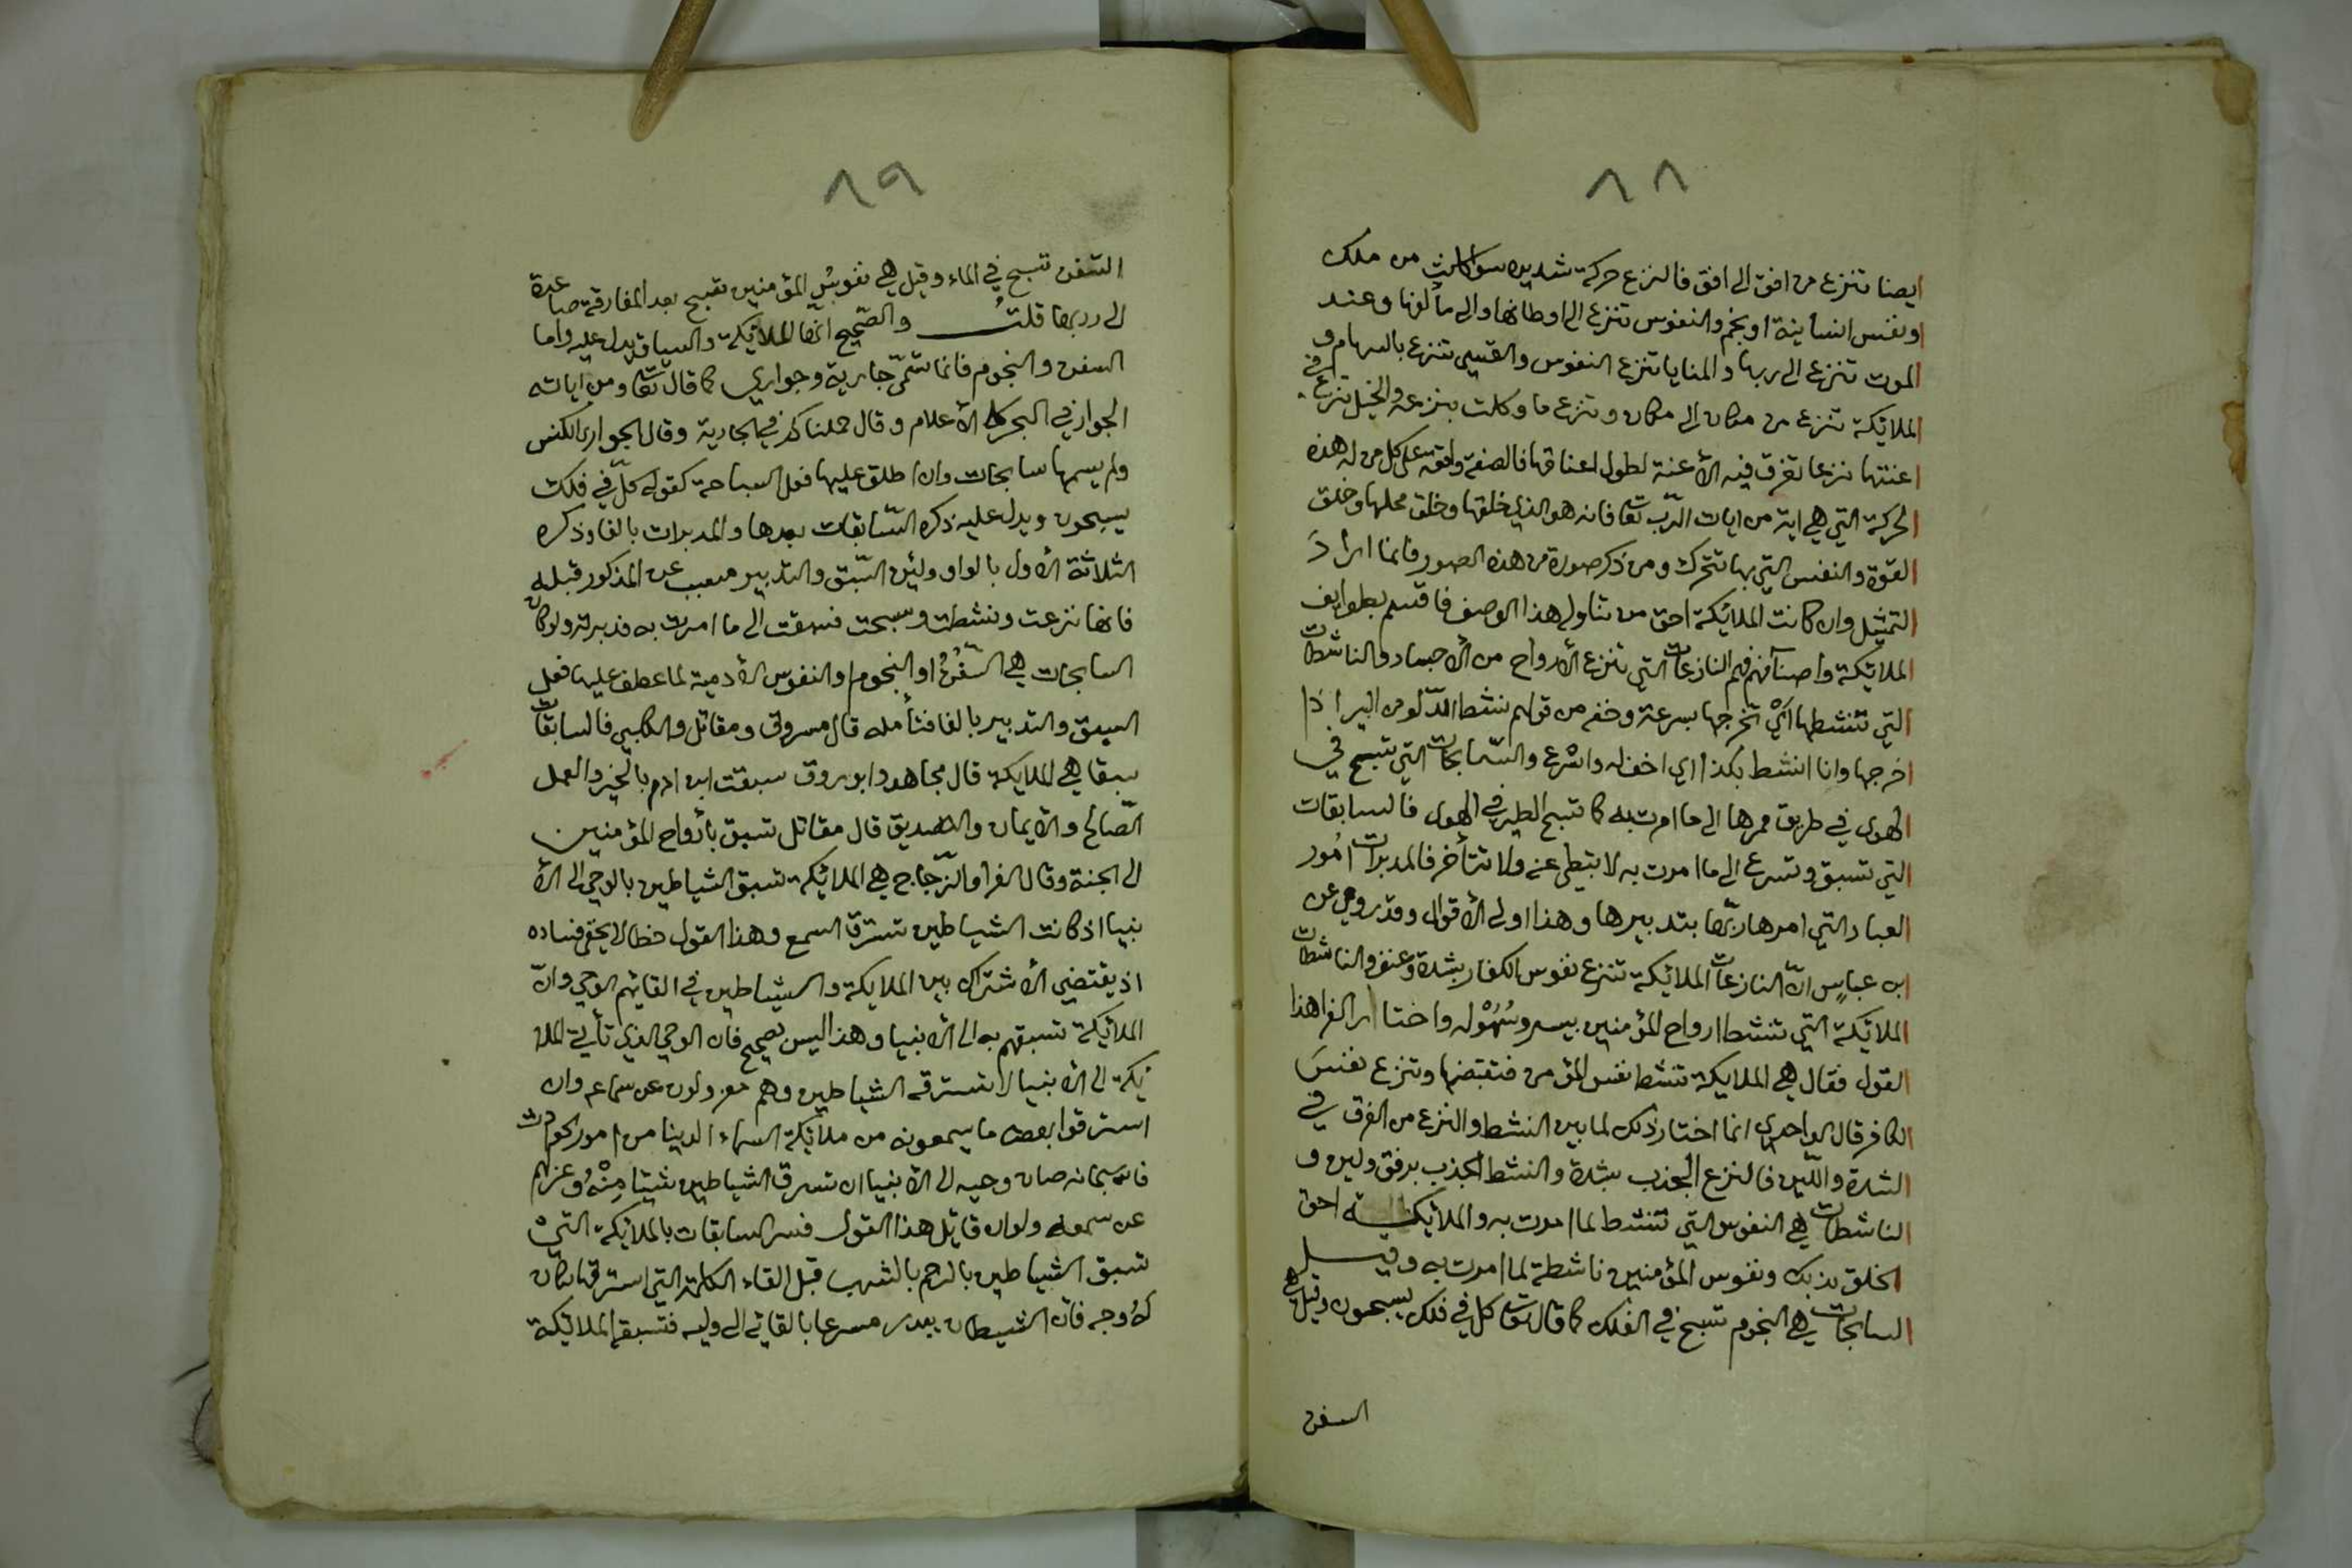 ٨٨
ايضا تنزع من افق الى افق فالنزع حركة شديده سوا كانت من ملك
او نفس انسانية او نجم والنفوس تنزع الى اوطانها والى مألفها وعند
الموت تنزع الى ربها والمنايا تنزع النفوس والقسي تنزع بالسهام و
الملائكة تنزع من مكان الى مكان وتنزع ما وكلت بنزعه والخيل تنزع في
اعنتها نزعا تغرق فيه الأعنة لطول اعناقها فالصفة واقعة على كل من له هذه
الحركة التي هي اية من ايات الرّب تعا فانه هو الذي خلقها وخلق محلها وخلق
القوة والنفس التي بها تتحرك ومن ذكر صورة من هذه الصور فانما اراد
التمثيل وان كانت الملائكة احق من تناوله هذا الوصف فاقسم بطوايف
الملائكة واصنافهم فهم النازعات التي تنزع الأرواح من الأجساد والناشطات
التي تنشطها أي تخرجها بسرعة وخفه من قولهم نشط الدّلو من البير اذا
اخرجها وانا انشط بكذا اي اخف له واسرع والسّابحات التي تسبح في
الهوى في طريق ممرها الى ما امرت به كما تسبح الطير في الهوى فالسابقات
التي تسبق وتسرع الى ما امرت به لا تبطي عنه ولا تتأخر فالمدبرات امُور
العباد التي امرها ربّها بتدبيرها وهذا اولى الأقوال وقد روي عن
ابن عباس انّ النازعات الملائكة تنزع نفوس الكفار بشدة وعنف والناشطات
الملائكة التي تنشط ارواح المؤمنين بيسر وسُهُوْله واختار الفرا هذا
القول فقال هي الملايكة تنشط نفس المؤمن فتقبضها وتنزع نفسَ
الكافر قال الواحدي انما اختار ذلك لما بين النشط والنزع من الفرق في
الشدة واللّين فالنزع الجذب بشدة والنشط الجذب برفق ولين و
الناشطات هي النفوس التي تنشط لما امرت به والملائكة احق
الخلق بذلك ونفوس المؤمنين ناشطة لما امرت به وقيل
السابحات هي النجوم تسبح في الفلك كما قال تعا كل في فلك يسبحون وقيل هي
السفن
٨٩
السّفن تسبح في الماء وقيل هي نفوسُ المؤمنين تسبح بعد المفارقة صاعدة
الى ربها قلتُ والصّحيح انّها الملائكة والسياق يدل عليه واما
السفن والنجوم فانما تسّمى جارية وجواري كما قال تعا ومن اياته
الجوار في البحر كالأعلام وقال حملناكم في الجارية وقال الجوار الكنس
ولم يسمها سابحات وان اطلق عليها فعل السباحة كقوله كلّ في فلك
يسبحون ويدل عليه ذكره السّابقات بعدها والمدبرات بالفا وذكره
الثلاثة الأول بالواو ولئن السّبق والتدبير مسبب عن المذكور قبله
فانها نزعت ونشطت وسبحت فسبقت الى ما امرت به فدبرته ولو كان
السابحات هي السّفُنُ او النجوم او النفوس الأدمية لما عطف عليها فعل
السبق والتدبير بالفا فتأمله قال مسروق ومقاتل والكلبي فالسابقات
سبقا هي الملايكة قال مجاهد وابو روق سبقت ابن ادم بالخير والعمل
الصّالح والأيمان والتصديق قال مقاتل تسبق بأرواح المؤمنين
الى الجنة وقال الفرا والزّجاج هي الملائكة تسبق الشياطين بالوحي الى الأ
نبيا اذ كانت الشياطين تسترق السمع وهذا القول خطا لا يخفى فساده
اذ يقتضي الأشتراك بين الملايكة والشياطين في القائهم الوحي وانّ
الملائكة تسبقهم به الى الأنبيا وهذا ليس بصحيح فان الوحي الذي تأتي به الملا
ئكة الى الأنبيا لا تسترقه الشياطين وهم معزولون عن سماعه وان
استرقوا بعض ما يسمعونه من ملائكة السماء الدنيا من امور الحوادث
فالله سبحانه صان وحيه الى الأنبيا ان تسرق الشياطين شيئا مِنْهُ وعزلهم
عن سمعه ولو ان قائل هذا القول فسر السابقات بالملائكة التيْ
تسبق الشياطين بالرجم بالشهب قبل القاء الكلمة التي استرقها لكان
لهُ وجه فان الشيطان يبدر مسرعا بالقائه الى وليه فتسبقه الملائكة